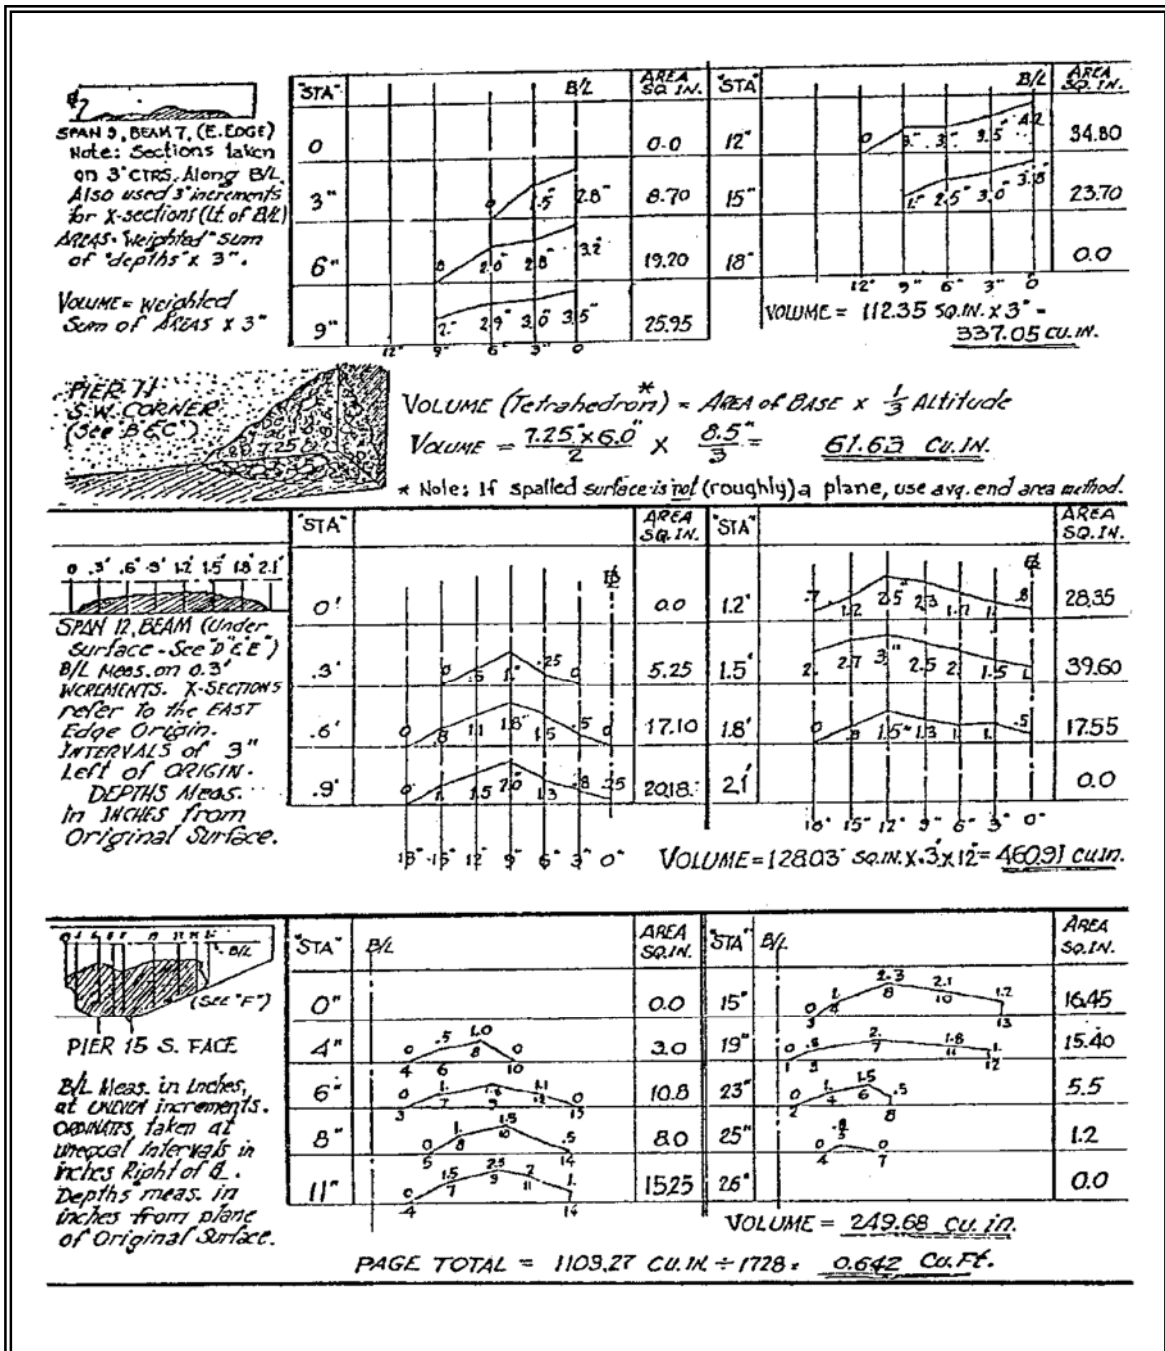 "STA" B/L AREA SQ. IN. "STA" B/L AREA SQ. IN.
SPAN 9, BEAM 7, (E. EDGE)
Note: Sections taken
on 3" CTRS. Along B/L.
Also used 3" increments
for X-sections (Lt. of B/L)
AREAS = "Weighted" Sum
of "depths" x 3".
VOLUME = Weighted
Sum of AREAS x 3"
0 0.0 12" 0 3." 3." 3.5" 4.2 34.80
3" 0 1.5" 2.8" 8.70 15" 1." 2.5" 3.0" 3.8" 23.70
6" 0 2.0" 2.8" 3.2" 19.20 18" 0.0
9" 2." 2.9" 3.0" 3.5" 25.95
12" 9" 6" 3" 0
12" 9" 6" 3" 0
VOLUME = 112.35 SQ.IN. x 3" =
337.05 CU. IN.
PIER 71
S.W. CORNER
7.25
VOLUME (Tetrahedron*) = AREA of BASE x 1/3 Altitude
VOLUME = 7.25" x 6.0" / 2 x 8.5" / 3 = 61.63 CU. IN.
* Note: If spalled surface is not (roughly) a plane, use avg. end area method.
"STA" AREA SQ. IN. "STA" AREA SQ. IN.
0 .3' .6' .9' 1.2' 1.5' 1.8' 2.1'
SPAN 12, BEAM (Under
surface - See "D" & "E")
B/L Meas. on 0.3'
INCREMENTS. X-SECTIONS
refer to the EAST
Edge Origin.
INTERVALS of 3"
Left of ORIGIN.
DEPTHS Meas.
in INCHES from
Original Surface.
0' 0.0 1.2' .7 1.2 2.5" 2.3 1.7 1. .8 28.35
.3' 0 .5 1." .25 0 5.25 1.5' 2. 2.7 3." 2.5 2. 1.5 1. 39.60
.6' 0 .8 1.1 1.8" 1.5 .5 0 17.10 1.8' 0 .8 1.5" 1.3 1. 1. .5 17.55
.9' 0 1. 1.5 2.0" 1.3 .8 .25 20.18 2.1' 0.0
18" 15" 12" 9" 6" 3" 0"
18" 15" 12" 9" 6" 3" 0"
VOLUME = 128.03 SQ.IN. x .3' x 12" = 460.91 CU.IN.
"STA" B/L AREA SQ.IN. "STA" B/L AREA SQ.IN.
B/L
(SEE "F")
PIER 15 S. FACE
B/L Meas. in Inches,
at UNEVEN increments.
ORDINATES taken at
unequal Intervals in
inches Right of B/L.
Depths meas. in
inches from plane
of Original Surface.
0" 0.0 15" 0 1. 2.3 2.1 1.2 3 4 8 10 13 16.45
4" 0 .5 1.0 0 4 6 8 10 3.0 19" 0 .8 2. 1.8 1. 1 3 7 11 12 15.40
6" 0 1. 1.1 0 3 7 9 12 13 10.8 23" 0 1. 1.5 .5 2 4 6 8 5.5
8" 0 1. 1.5 .5 5 8 10 14 8.0 25" 0 .8 0 4 5 7 1.2
11" 0 1.5 2.5 2 1. 4 7 9 11 14 15.25 26" 0.0
VOLUME = 249.68 cu. in.
PAGE TOTAL = 1109.27 CU. IN ÷ 1728 = 0.642 Cu. Ft.